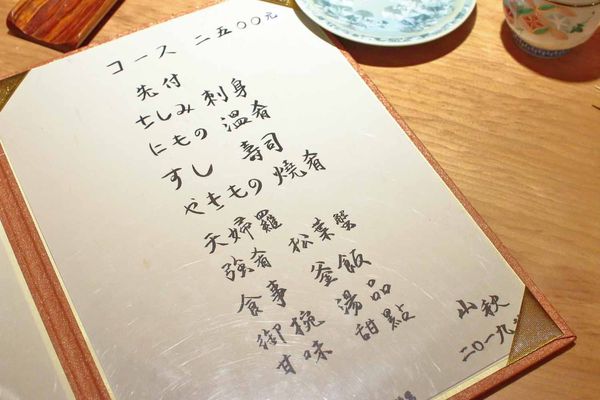 コース 二五〇〇元
先付
さしみ 刺身
にもの 溫肴
すし 壽司
やきもの 燒肴
天婦羅
強肴 松葉蟹
食事 釜飯
御椀 湯品
甘味 甜點
小秋
二〇一九